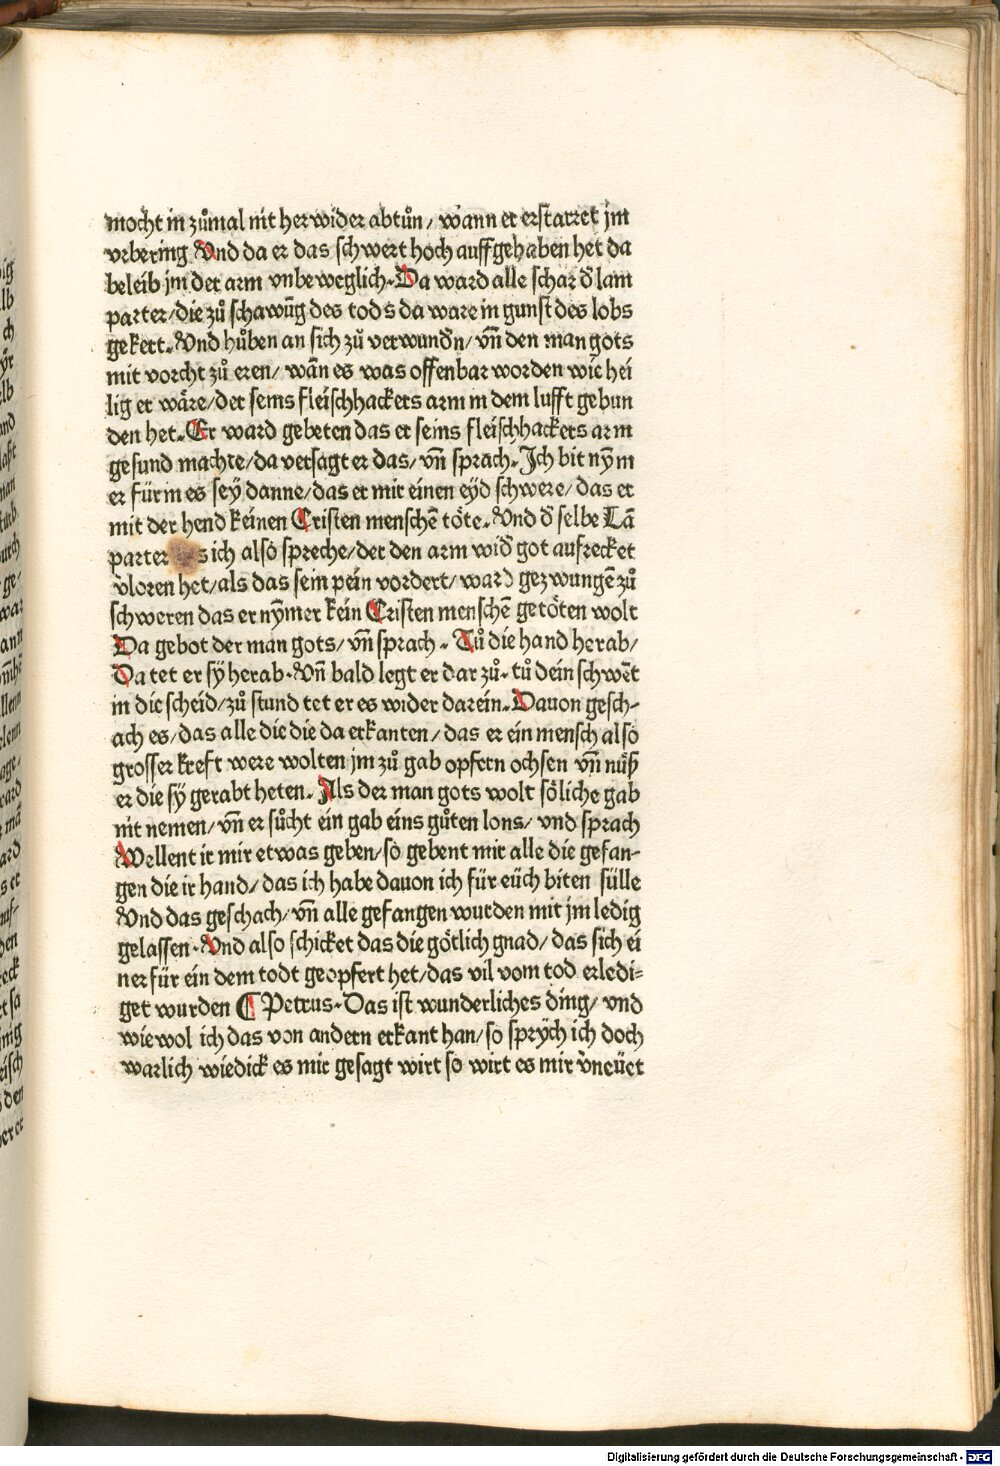 mocht in zůmal nit herwider abtůn/ wann er erstarret jm
vrbering Vnd da er das schwert hoch auffgehaben het da
beleib jm der arm vnbeweglich. Da ward alle schar d̄ lam
parter/die zů schawūg des tods da ware in gunst des lobs
gekert. Vnd hůben an sich zů verwund̄n/ vn̄ den man gots
mit vorcht zů eren/ wān es was offenbar worden wie hei
lig er wäre/der seins fleischhackers arm in dem lufft gebun
den het. Er ward gebeten das er seins fleischhackers arm
gesund machte/da versagt er das/ vn̄ sprach. Ich bit nȳm
er für in es seÿ danne/das er mir einen eÿd schwere/ das er
mit der hend keinen Cristen menschē töte. Vnd d̄ selbe Lā
parter ich also spreche/der den arm wid̄ got aufrecket
v̄loren het/als das sein pein vordert/ ward gezwungē zů
schweren das er nȳmer kein Cristen menschē getöten wolt
Da gebot der man gots/ vn̄ sprach. Tů die hand herab/
Da tet er sÿ herab. Vn̄ bald legt er dar zů. tů dein schwēt
in die scheid/zů stund tet er es wider darein. Dauon gesch-
ach es/das alle die die da erkanten/ das er ein mensch also
grosser kreft were wolten jm zů gab opfern ochsen vn̄ nuß
er die sÿ gerabt heten. Als der man gots wolt söliche gab
nit nemen/ vn̄ er sůcht ein gab eins gůten lons/ vnd sprach
Wellent ir mir etwas geben/so gebent mir alle die gefan-
gen die ir hand/ das ich habe dauon ich für eüch biten sülle
Vnd das geschach/ vn̄ alle gefangen wurden mit jm ledig
gelassen. Vnd also schicket das die götlich gnad/ das sich ei
ner für ein dem todt geopfert het/das vil vom tod erledi-
get wurden ¶ Petrus. Das ist wunderliches ding/ vnd
wiewol ich das von andern erkant han/so sprÿch ich doch
warlich wiedick es mir gesagt wirt so wirt es mir v̄neüet
Digitalisierung gefördert durch die Deutsche Forschungsgemeinschaft - DFG